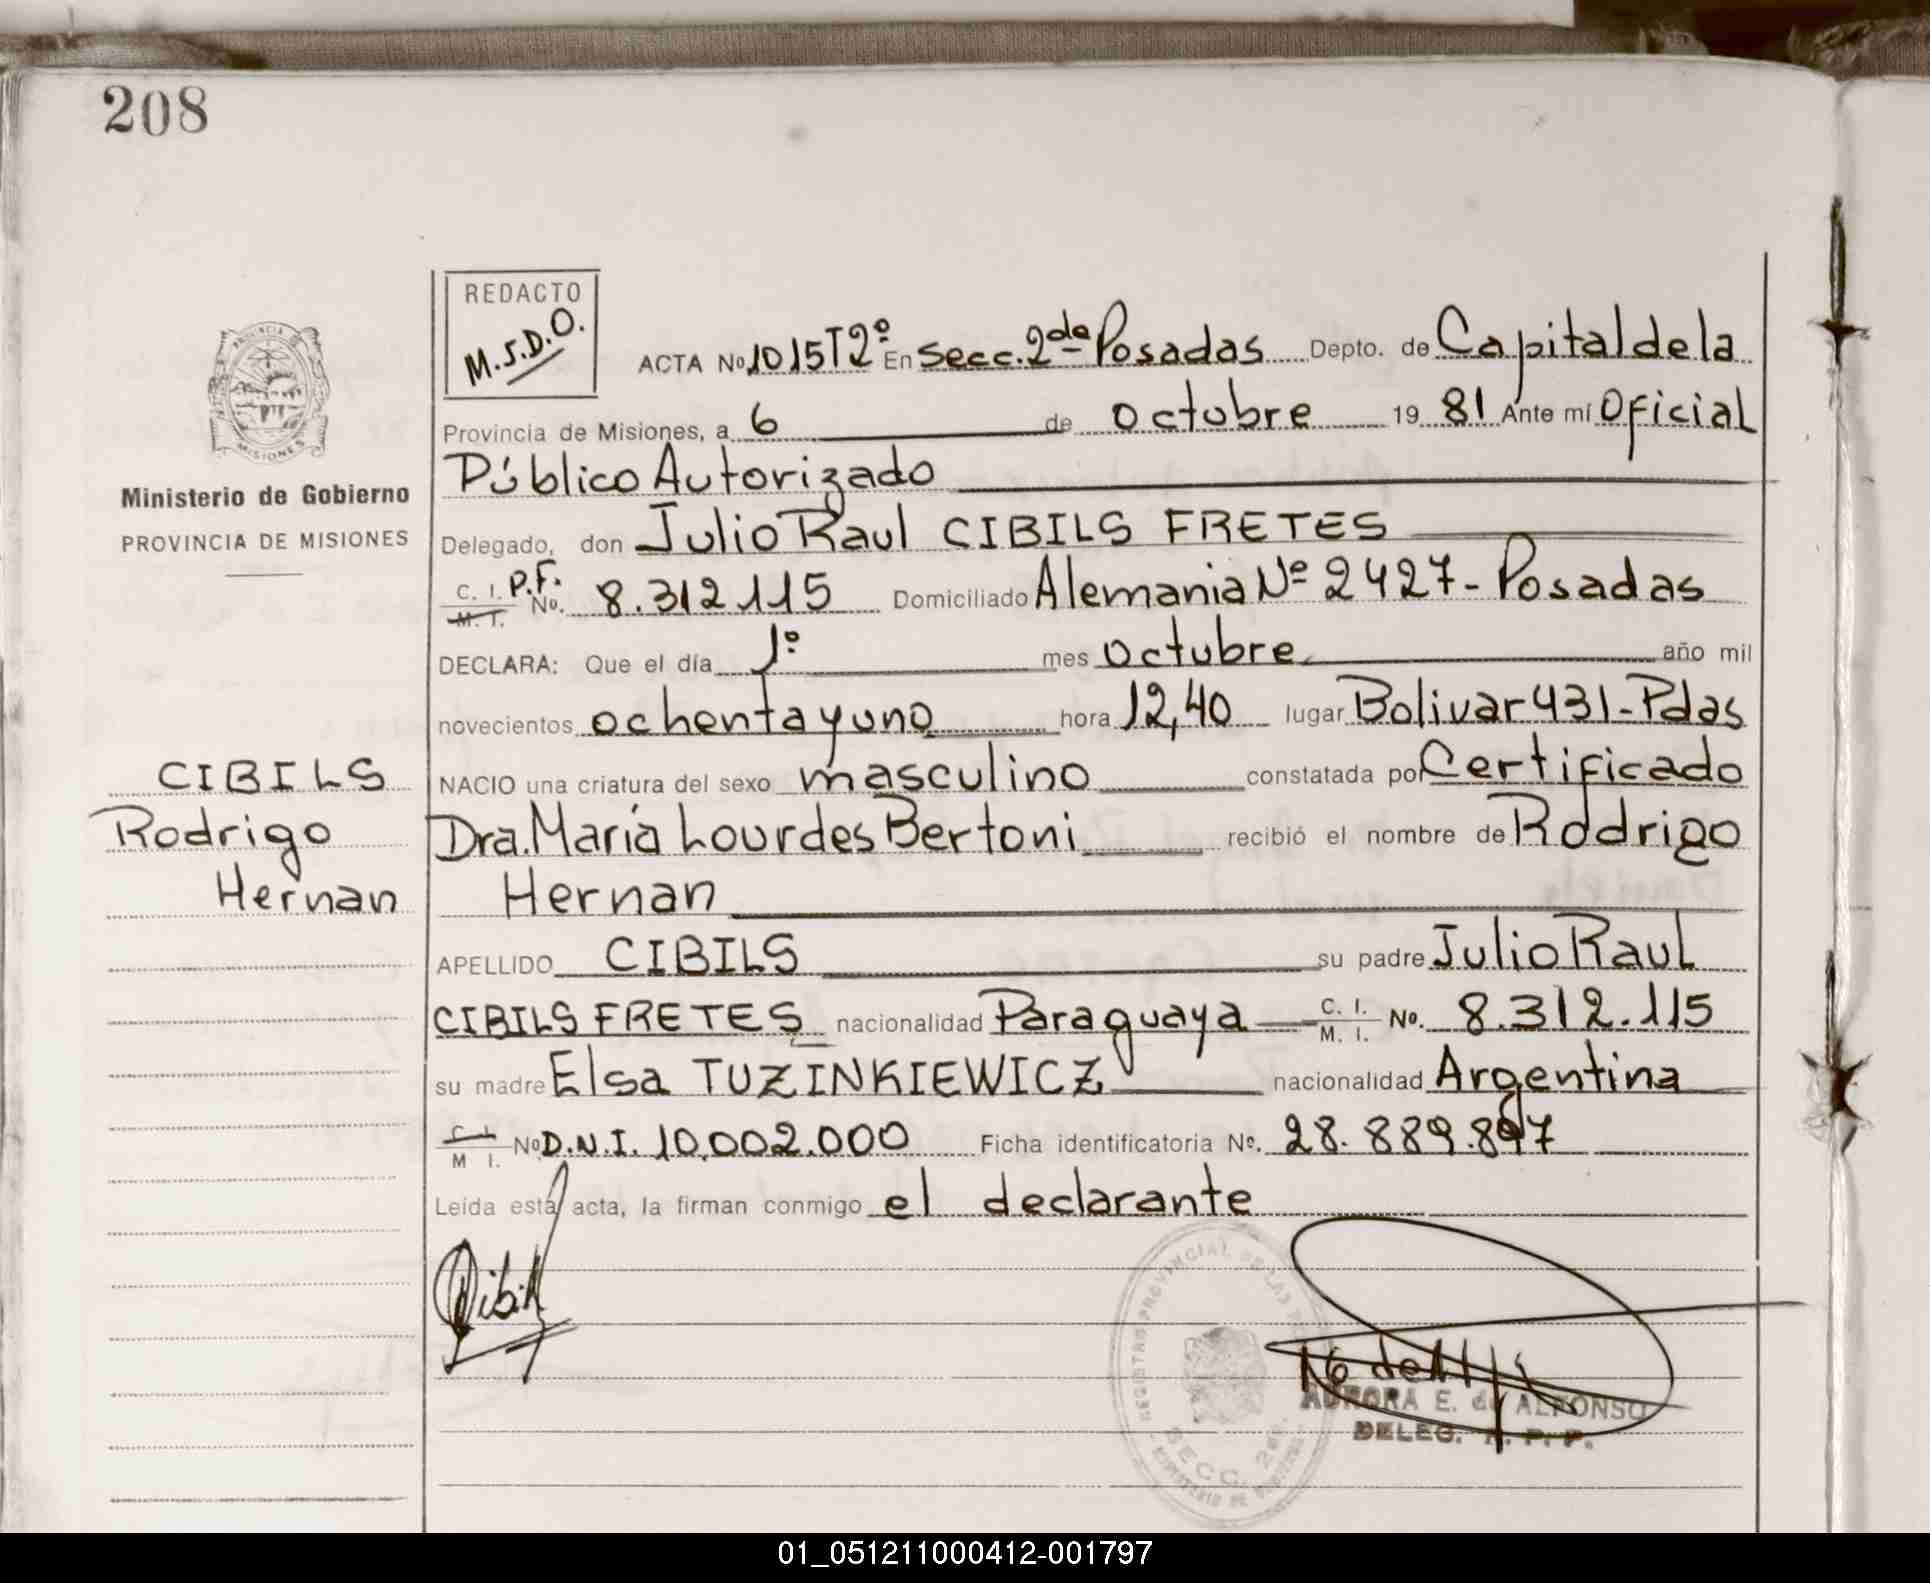 208
REDACTO
M.S.D.O.
ACTA No 1015 T 2º En Secc. 2da Posadas Depto. de Capital de la
Provincia de Misiones, a 6 de octubre 1981 Ante mí Oficial
Público Autorizado
Delegado, don Julio Raul CIBILS FRETES
C. I. P.F.
M. I. No. 8.312.115 Domiciliado Alemania Nº 2427 - Posadas
DECLARA: Que el día 1º mes octubre año mil
novecientos ochenta y uno hora 12,40 lugar Bolivar 431 - Pdas
NACIO una criatura del sexo masculino constatada por Certificado
Dra. María Lourdes Bertoni recibió el nombre de Rodrigo
Hernan
APELLIDO CIBILS su padre Julio Raul
CIBILS FRETES nacionalidad Paraguaya C. I. M. I. No. 8.312.115
su madre Elsa TUZINKIEWICZ nacionalidad Argentina
C. I. M I. No D.N.I. 10.002.000 Ficha identificatoria No. 28.889.897
Leída está acta, la firman conmigo el declarante
PROVINCIA
MISIONES
Ministerio de Gobierno
PROVINCIA DE MISIONES
CIBILS
Rodrigo
Hernan
REGISTRO PROVINCIAL DE LAS
SECC. 2da.
AURORA E. de ALFONSO
DELEG. R. P. P.
01_051211000412-001797